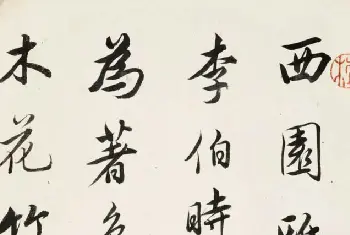 西園
李伯時
為著色
木花竹